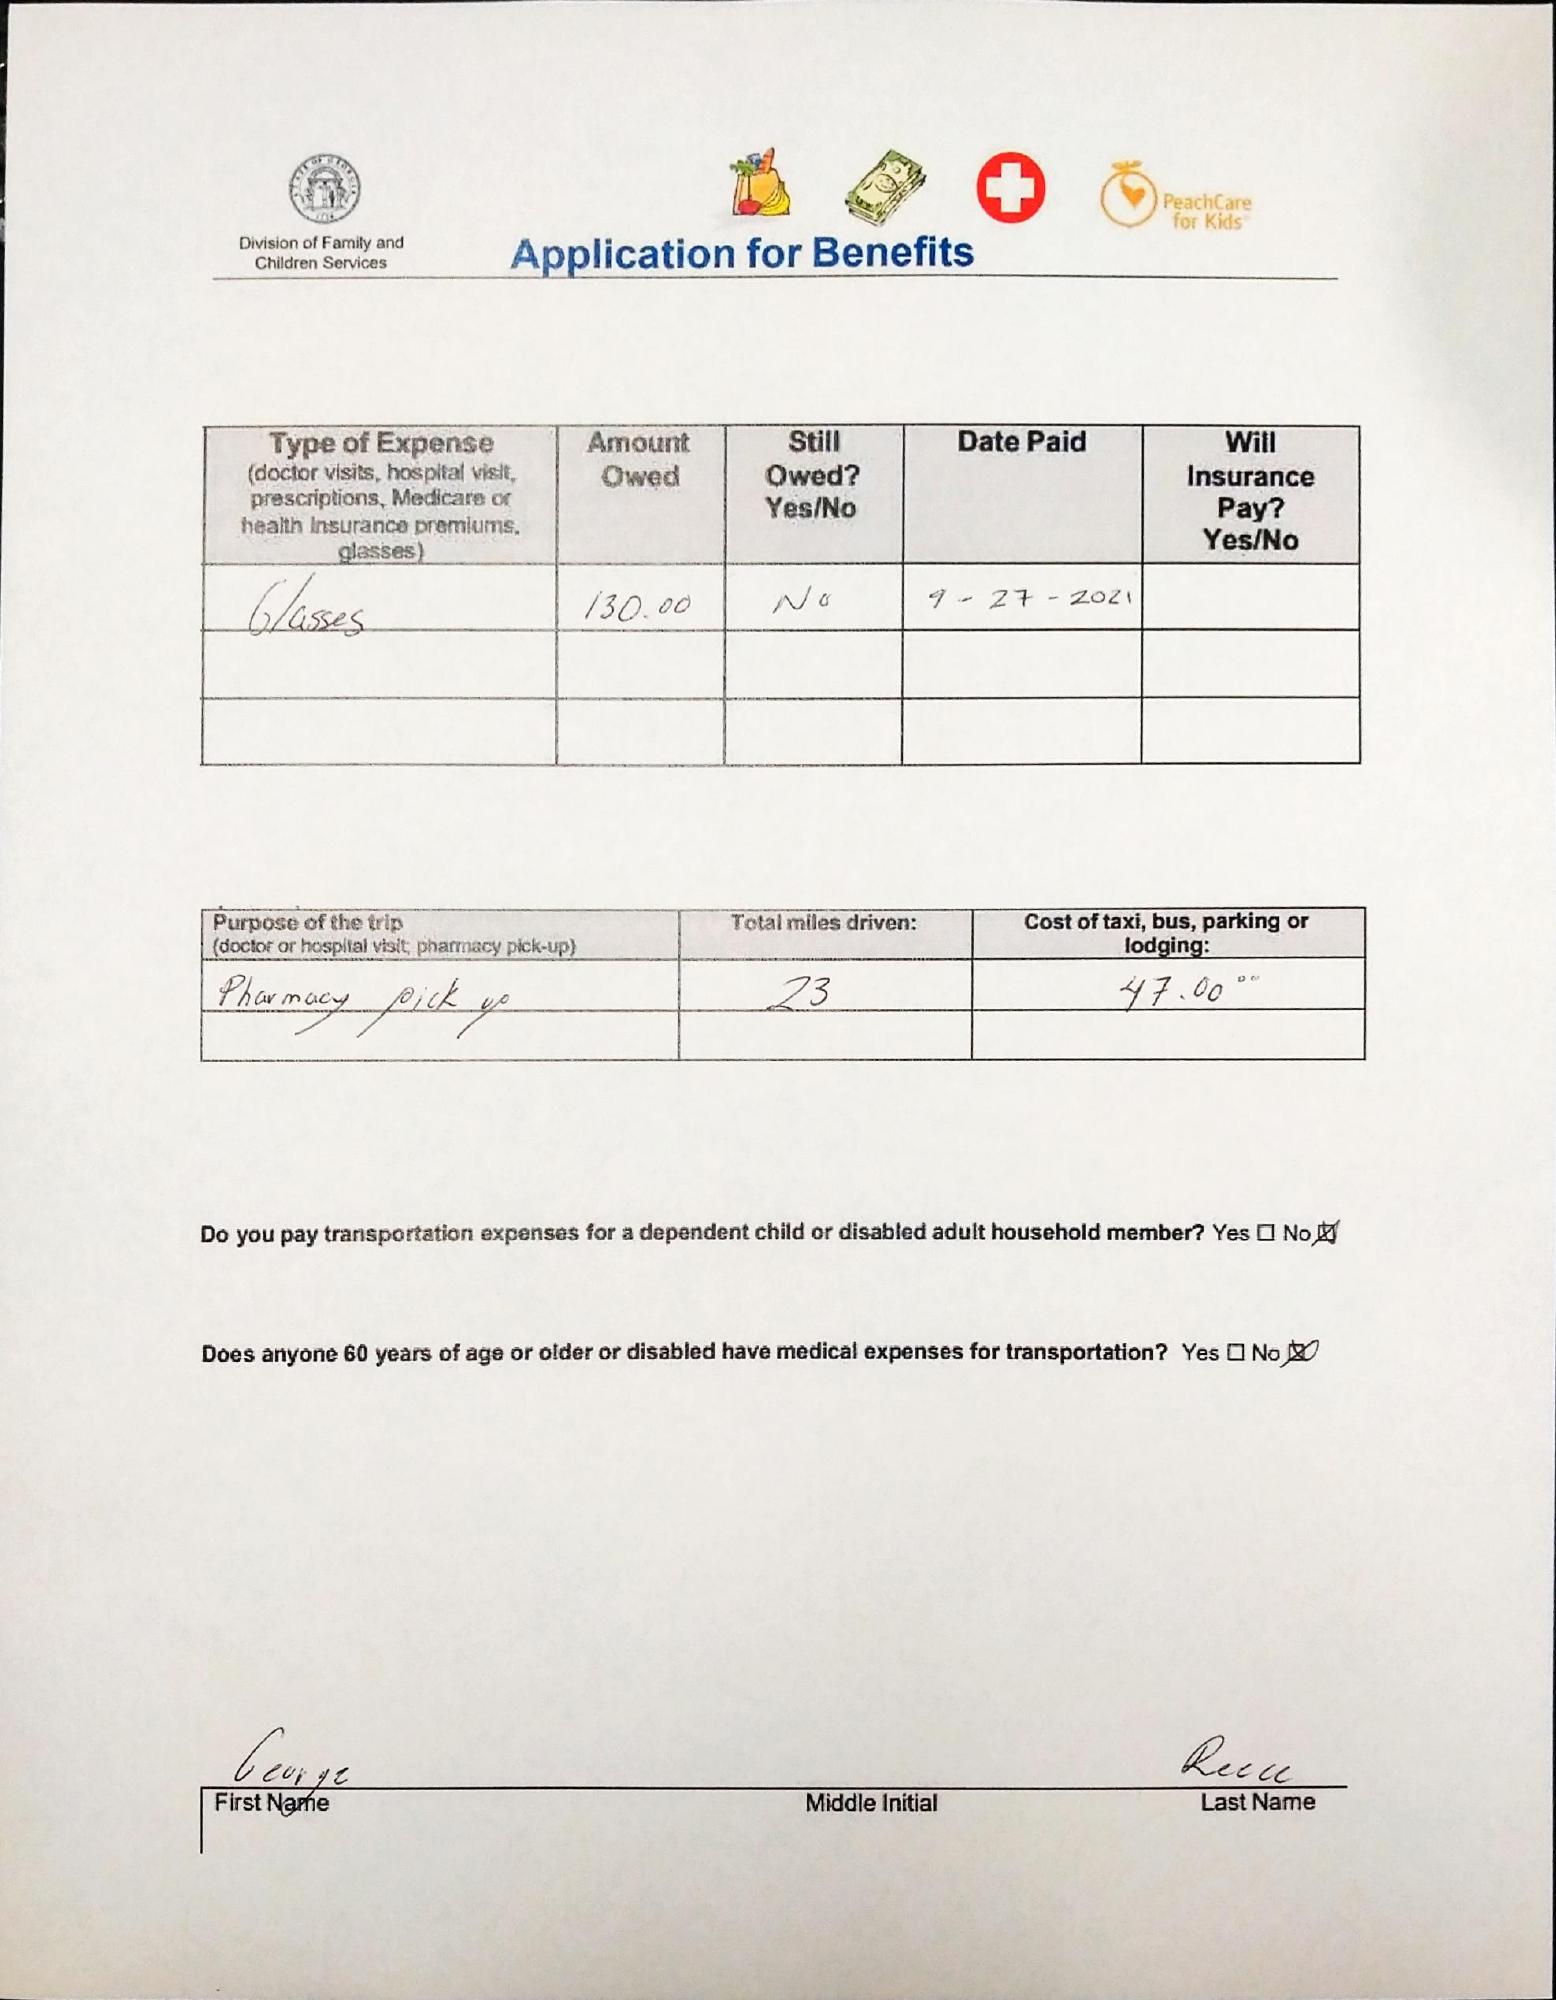 STATE OF GEORGIA
1776
PeachCare
for Kids
Division of Family and
Children Services
Application for Benefits
Type of Expense
(doctor visits, hospital visit,
prescriptions, Medicare or
health insurance premiums,
glasses)
Amount
Owed
Still
Owed?
Yes/No
Date Paid
Will
Insurance
Pay?
Yes/No
Glasses 130.00 No 9-27-2021
Purpose of the trip
(doctor or hospital visit, pharmacy pick-up)
Total miles driven:
Cost of taxi, bus, parking or
lodging:
Pharmacy pick up 23 47.00 00
Do you pay transportation expenses for a dependent child or disabled adult household member? Yes ☐ No ☒
Does anyone 60 years of age or older or disabled have medical expenses for transportation? Yes ☐ No ☒
George
First Name Middle Initial Last Name